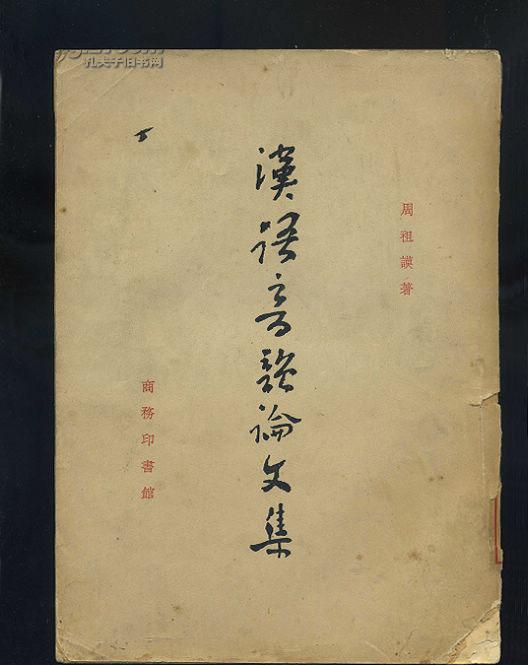 孔夫子旧书网
周祖謨著
漢語音韻論文集
商務印書館